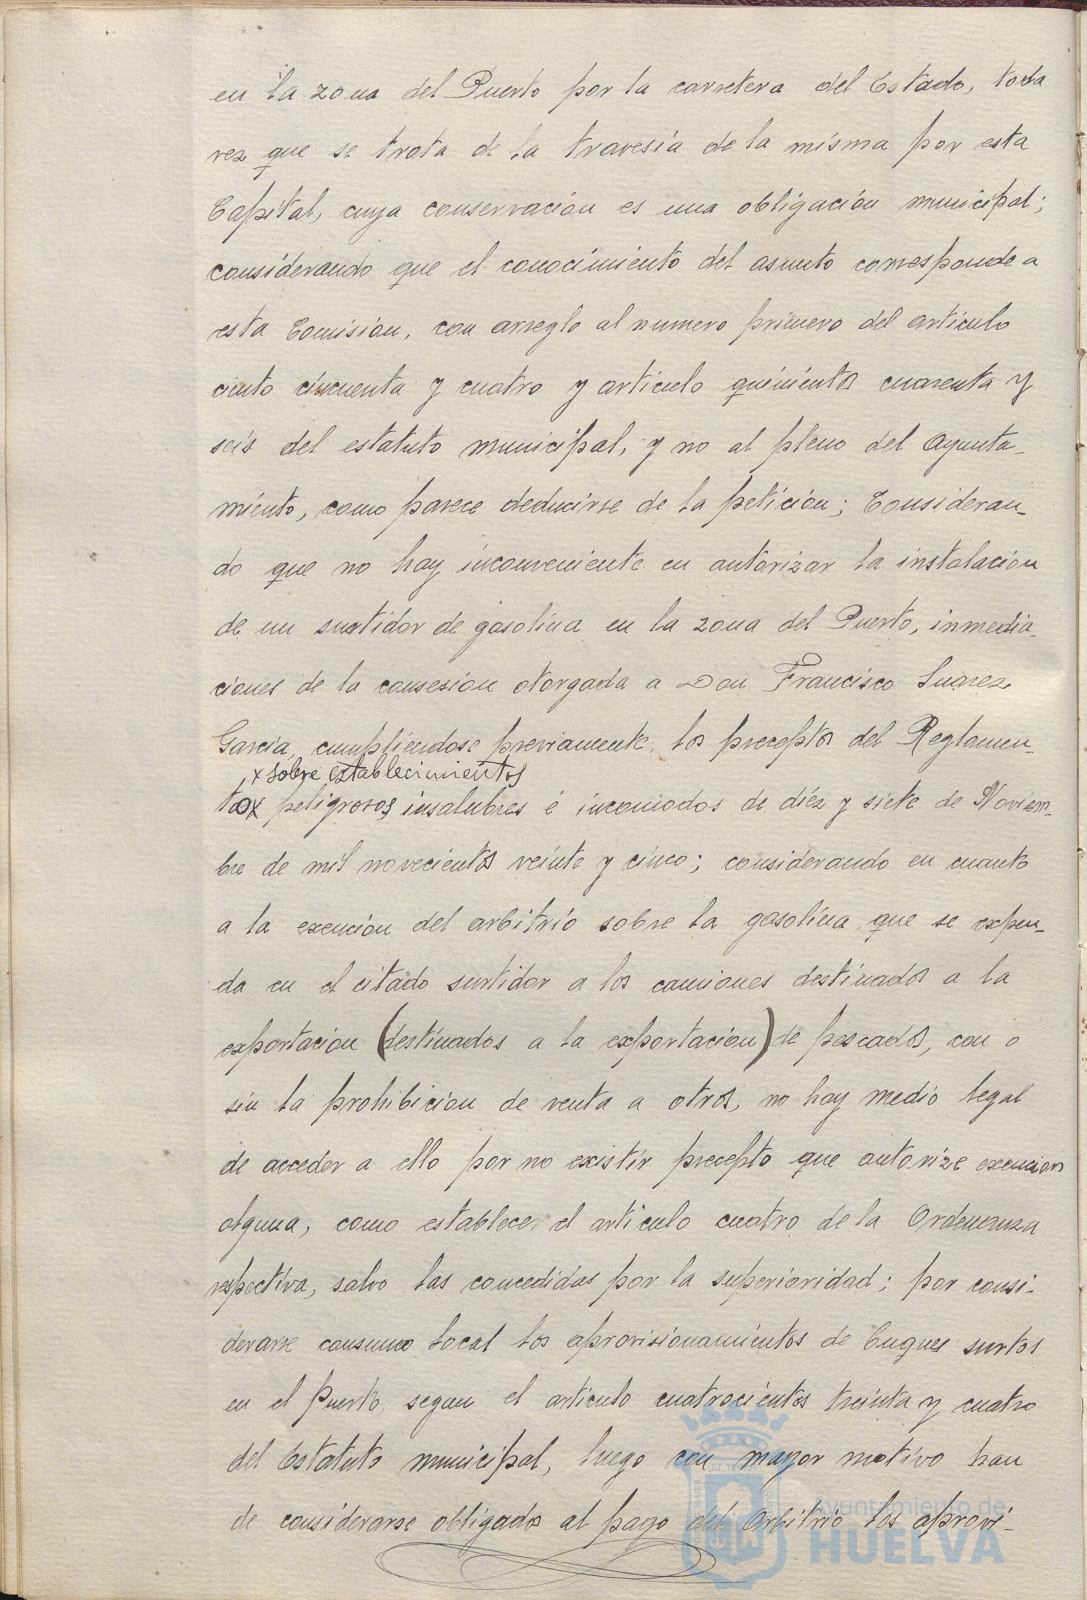 en la zona del Puerto por la carretera del Estado, toda
vez que se trata de la travesía de la misma por esta
Capital, cuya conservación es una obligación municipal;
considerando que el conocimiento del asunto corresponde a
esta Comisión, con arreglo al numero primero del artículo
ciento cincuenta y cuatro y articulo quinientos cuarenta y
seis del estatuto municipal, y no al pleno del Ayunta-
miento, como parece deducirse de la petición; Consideran-
do que no hay inconveniente en autorizar la instalación
de un surtidor de gasolina en la zona del Puerto, inmedia-
ciones de la consesion otorgada a Don Francisco Suarez
Garcia, cumpliendose previamente, los preceptos del Reglamen-
x sobre establecimientos
tox peligrosos, insalubres é incomodos de diez y siete de Noviem-
bre de mil novecientos veinte y cinco; considerando en cuanto
a la exención del arbitrio sobre la gasolina que se expen-
da en el citado surtidor a los camiones destinados a la
exportación (destinados a la exportación) de pescados, con o
sin la prohibición de venta a otros, no hay medio legal
de acceder a ello por no existir precepto que autorize exencion
alguna, como establece el articulo cuatro de la Ordenanza
respectiva, salvo las concedidas por la superioridad; por consi-
derarse consumo local los aprovisionamientos de buques surtos
en el Puerto, segun el articulo cuatrocientos treinta y cuatro
del Estatuto municipal, luego con mayor motivo han
de considerarse obligados al pago del Arbitrio los aprovi-
Ayuntamiento de
HUELVA